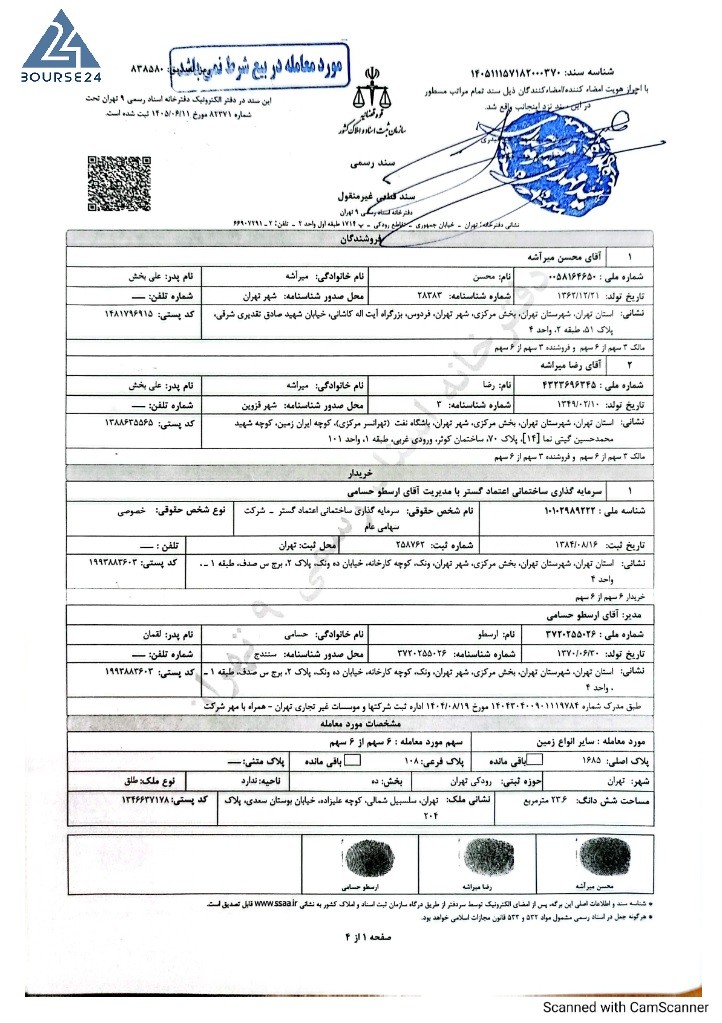 BOURSE24
مورد معامله در بیع شرط نمی باشد
رمز تصدیق: ۸۳۸۵۸۰
شناسه سند: ۱۴۰۵۱۱۱۵۷۱۸۲۰۰۰۳۷۰
با احراز هویت امضاء کننده/امضاءکنندگان ذیل سند تمام مراتب مسطور
در این سند نزد اینجانب واقع شد.
این سند در دفتر الکترونیک دفترخانه اسناد رسمی ۹ تهران تحت
شماره ۸۲۳۷۱ مورخ ۱۴۰۵/۰۶/۱۱ ثبت شده است.
قوه قضائیه
سازمان ثبت اسناد و املاک کشور
سند رسمی
سند قطعی غیرمنقول
دفترخانه اسناد رسمی ۹ تهران
نشانی دفترخانه: تهران - خیابان جمهوری - تقاطع رودکی - پ ۱۷۱۴ طبقه اول واحد ۲ - تلفن: ۲ - ۶۶۹۰۷۲۹۱
فروشندگان
۱ آقای محسن میرآشه
شماره ملی : ۰۰۵۸۱۶۴۶۵۰ نام: محسن نام خانوادگی: میرآشه نام پدر: علی بخش
تاریخ تولد: ۱۳۶۲/۱۲/۲۱ شماره شناسنامه: ۲۸۳۸۳ محل صدور شناسنامه: شهر تهران شماره تلفن: —
نشانی: استان تهران، شهرستان تهران، بخش مرکزی، شهر تهران، فردوس، بزرگراه آیت اله کاشانی، خیابان شهید صادق تقدیری شرقی، پلاک ۵۱، طبقه ۲، واحد ۴ کد پستی: ۱۴۸۱۷۹۶۹۱۵
مالک ۳ سهم از ۶ سهم و فروشنده ۳ سهم از ۶ سهم
۲ آقای رضا میراشه
شماره ملی : ۴۳۲۳۶۹۶۳۴۵ نام: رضا نام خانوادگی: میراشه نام پدر: علی بخش
تاریخ تولد: ۱۳۴۹/۰۲/۱۰ شماره شناسنامه: ۳ محل صدور شناسنامه: شهر قزوین شماره تلفن: —
نشانی: استان تهران، شهرستان تهران، بخش مرکزی، شهر تهران، باشگاه نفت (تهرانسر مرکزی)، کوچه ایران زمین، کوچه شهید محمدحسین گیتی نما [۱۴]، پلاک ۷۰، ساختمان کوثر، ورودی غربی، طبقه ۱، واحد ۱۰۱ کد پستی: ۱۳۸۸۶۳۵۵۶۵
مالک ۳ سهم از ۶ سهم و فروشنده ۳ سهم از ۶ سهم
خریدار
۱ سرمایه گذاری ساختمانی اعتماد گستر با مدیریت آقای ارسطو حسامی
شناسه ملی : ۱۰۱۰۲۹۸۹۲۲۲ نام شخص حقوقی: سرمایه گذاری ساختمانی اعتماد گستر - شرکت سهامی عام نوع شخص حقوقی: خصوصی
تاریخ ثبت: ۱۳۸۴/۰۸/۱۶ شماره ثبت: ۲۵۸۷۶۲ محل ثبت: تهران تلفن : —
نشانی: استان تهران، شهرستان تهران، بخش مرکزی، شهر تهران، ونک، کوچه کارخانه، خیابان ده ونک، پلاک ۲، برج س صدف، طبقه ۱ - ۰
واحد ۴ کد پستی: ۱۹۹۳۸۸۳۶۰۳
خریدار ۶ سهم از ۶ سهم
مدیر: آقای ارسطو حسامی
شماره ملی : ۳۷۲۰۲۵۵۰۲۶ نام: ارسطو نام خانوادگی: حسامی نام پدر: لقمان
تاریخ تولد: ۱۳۷۰/۰۶/۳۰ شماره شناسنامه: ۳۷۲۰۲۵۵۰۲۶ محل صدور شناسنامه: سنندج شماره تلفن: —
نشانی: استان تهران، شهرستان تهران، بخش مرکزی، شهر تهران، ونک، کوچه کارخانه، خیابان ده ونک، پلاک ۲، برج س صدف، طبقه ۱ -
۰ واحد ۴ کد پستی: ۱۹۹۳۸۸۳۶۰۳
طبق مدرک شماره ۱۴۰۴۳۰۴۰۰۹۰۱۱۱۹۷۸۴ مورخ ۱۴۰۴/۰۸/۱۹ اداره ثبت شرکتها و موسسات غیر تجاری تهران - همراه با مهر شرکت
مشخصات مورد معامله
مورد معامله : سایر انواع زمین سهم مورد معامله : ۶ سهم از ۶ سهم
پلاک اصلی: ۱۶۸۵ باقی مانده پلاک فرعی: ۱۰۸ باقی مانده پلاک متنی: —
شهر: تهران حوزه ثبتی: رودکی تهران بخش: ده ناحیه: ندارد نوع ملک: طلق
مساحت شش دانگ: ۲۳.۶ مترمربع نشانی ملک: تهران، سلسبیل شمالی، کوچه علیزاده، خیابان بوستان سعدی، پلاک ۲۰۴ کد پستی: ۱۳۴۶۶۳۷۱۷۸
محسن میرآشه رضا میراشه ارسطو حسامی
* شناسه سند و اطلاعات اصلی این برگه، پس از امضای الکترونیک توسط سردفتر از طریق درگاه سازمان ثبت اسناد و املاک کشور به نشانی www.ssaa.ir قابل تصدیق است.
* هرگونه جعل در اسناد رسمی مشمول مواد ۵۳۲ و ۵۳۳ قانون مجازات اسلامی خواهد بود.
صفحه ۱ از ۴
دفترخانه اسناد رسمی ۹ تهران
Scanned with CamScanner